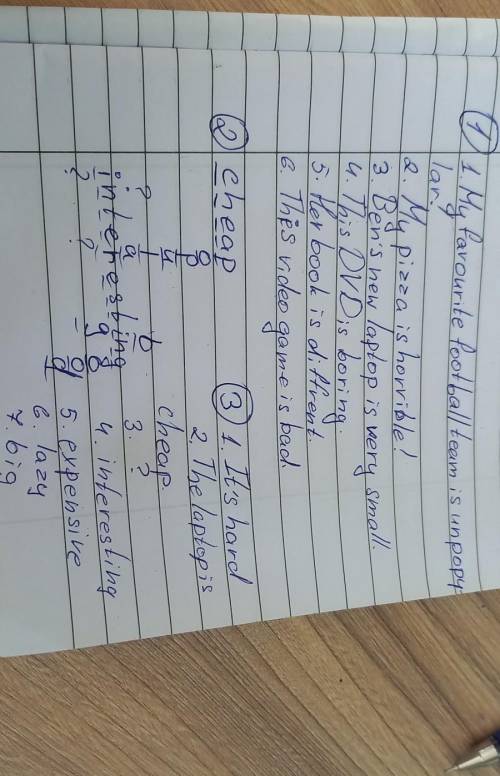 ① 1. My favourite football team is unpopu-
lar.
2. My pizza is horrible!
3. Ben's new laptop is very small.
4. This DVD is boring.
5. Her book is diffrent.
6. This video game is bad.
② cheap
interesting
③ 1. It's hard
2. The laptop is
cheap.
3. ?
4. interesting
5. expensive
6. lazy
7. big